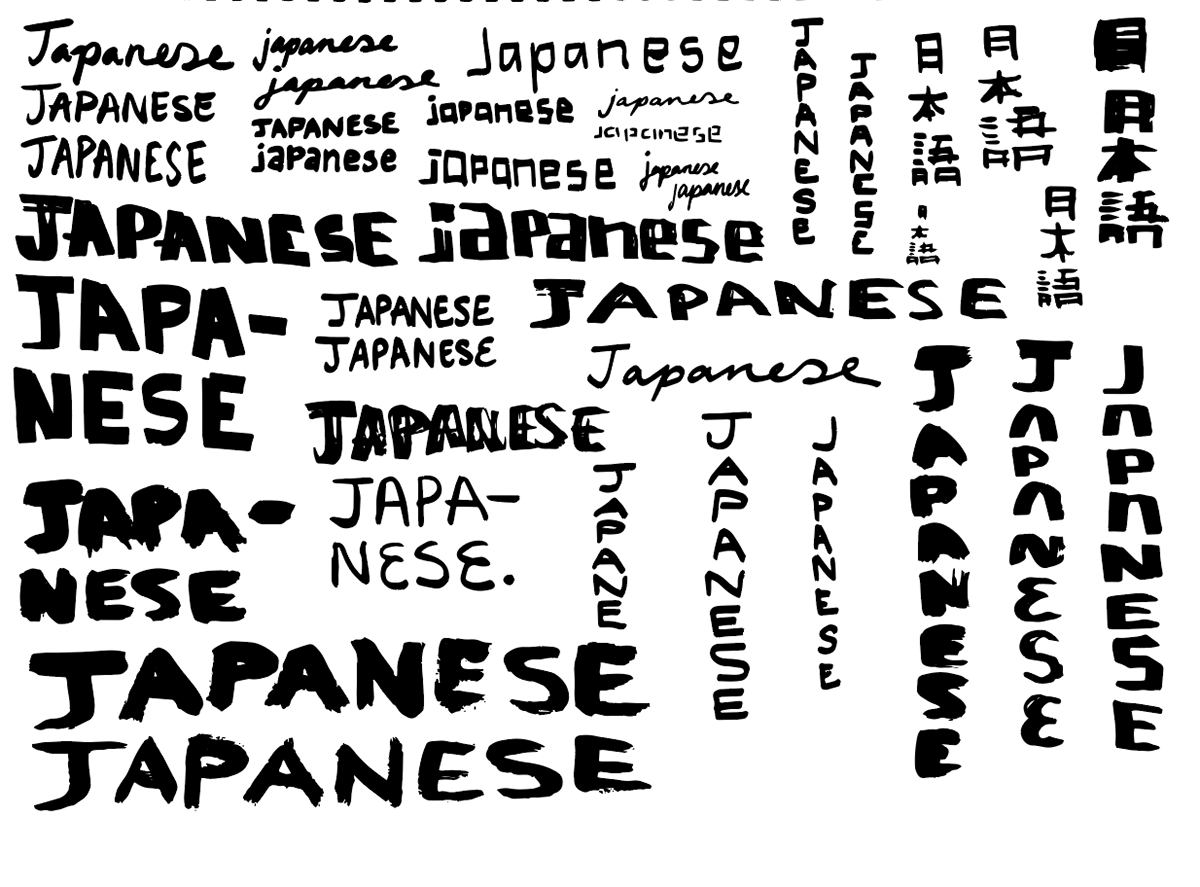 Japanese
JAPANESE
JAPANESE
japanese
japanese
JAPANESE
japanese
Japanese
japanese
japanese
japanese
japanese
japanese
japanese
JAPANESE
JAPANESE
日本語
日本語
日本語
日本語
日
日本語
JAPANESE
japanese
JAPA-
NESE
JAPANESE
JAPANESE
JAPANESE
Japanese
JAPANESE
JAPA-
NESE
JAPA-
NESE.
JAPANE
JAPANESE
JAPANESE
JAPANESE
JAPANESE
JAPANESE
JAPANESE
JAPANESE